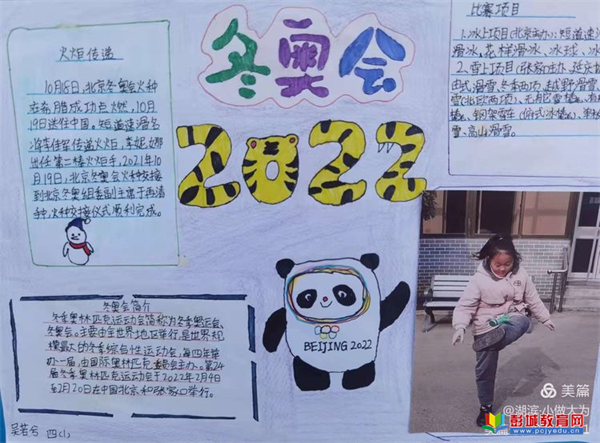 冬奥会
2022
火炬传递
10月18日,北京冬奥会火种
在希腊成功点燃,10月
19日送往中国。短道速滑名
将李佳军传递火炬,李妮娜
出任第二棒火炬手,2021年10
月19日,北京冬奥会火种交接
到北京冬奥组委副主席于再清
种,火种交接仪式顺利完成。
比赛项目
1.冰上项目(北京主办):短道速
滑冰,花样滑冰、冰球、冰
2.雪上项目(张家口主办、延庆
由式滑雪、冬季两项、越野滑雪
雪(北欧两项)、无舵雪橇
钢架雪车(俯式冰橇)
雪、高山滑雪。
BEIJING 2022
冬奥会简介
冬季奥林匹克运动会简称为冬季奥运会、
冬奥会。主要由全世界地区举行,是世界规
模最大的冬季综合性运动会,每四年举
办一届,由国际奥林匹克委员会主办。第24
届冬季奥林匹克运动会于2022年2月4日
至2月20日在中国北京和张家口举行。
吴若兮 四(1)
美篇
@湖滨·小做大为
彭城教育网
www.pcjyedu.cn